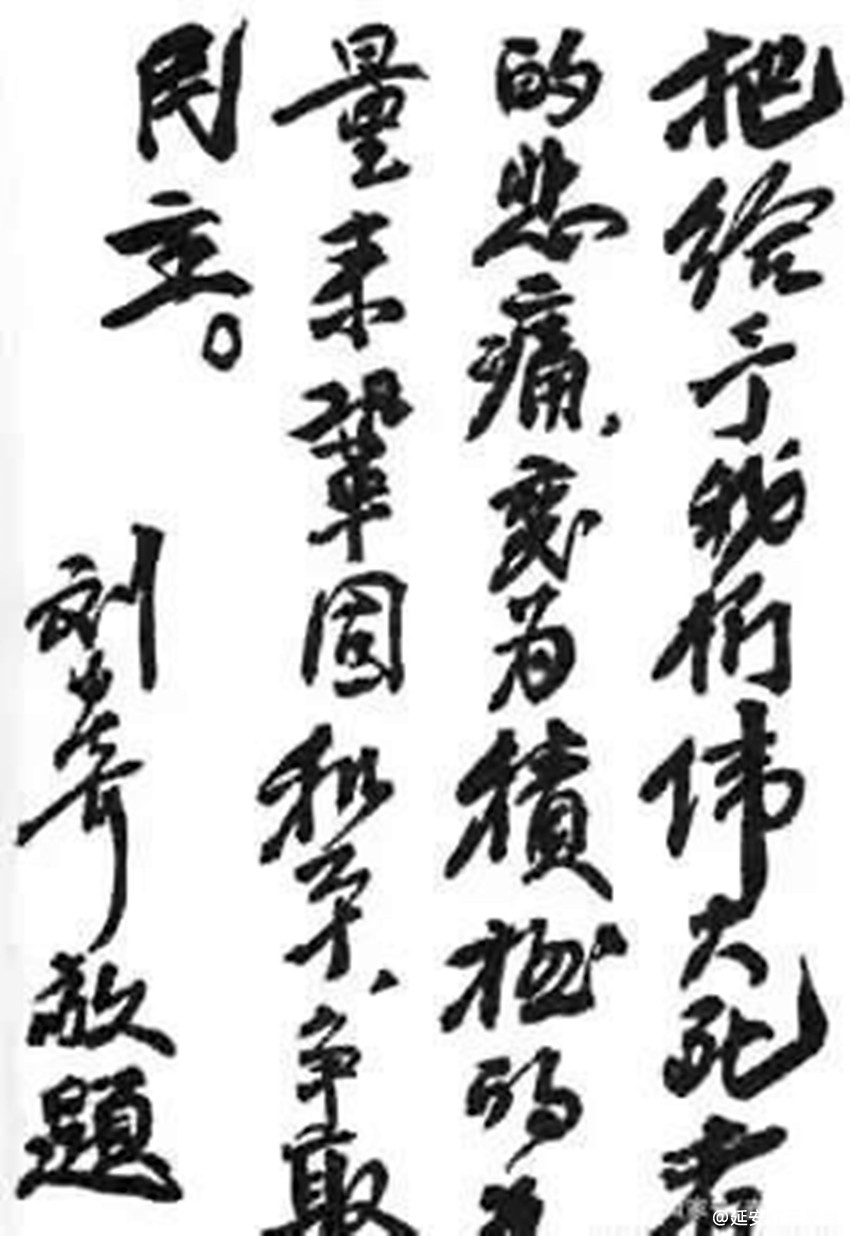 把给予我们伟大死者
的悲痛，变为積極的
量来鞏固和平、争取
民主。
刘少奇敬題
@延安